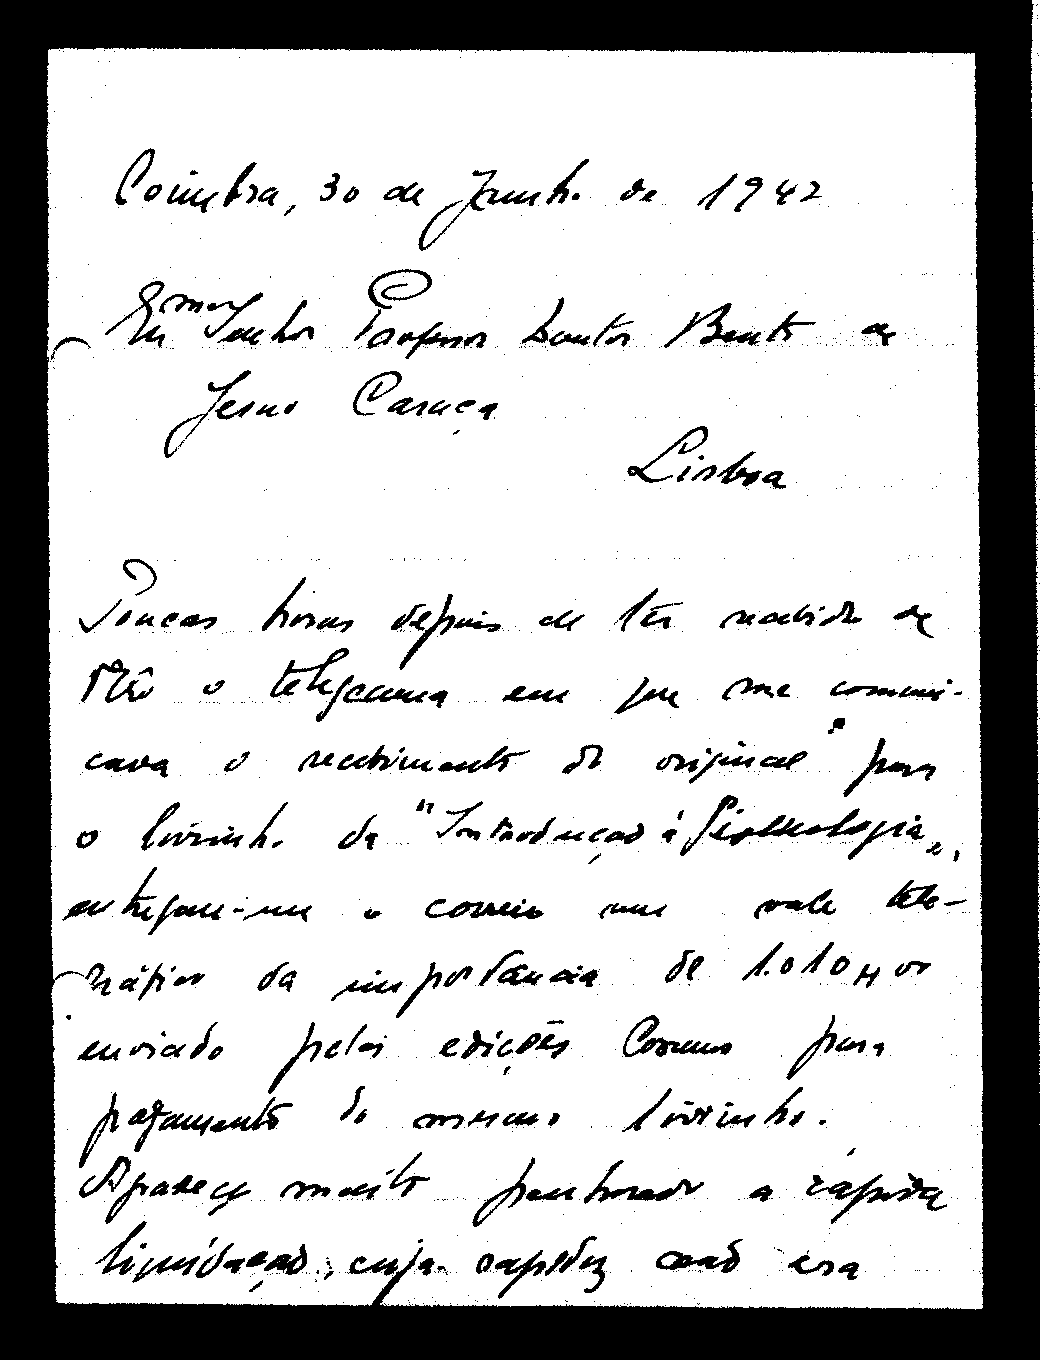 Coimbra, 30 de Junho de 1942
Exmo Senhor Professor Doutor Bento de
Jesus Caraça
Lisboa
Poucas horas depois de ter recebido de
o telegrama em que me comuni-
cava o recebimento do original para
o livrinho da "Introdução à
entregou-me o correio um vale tele-
gráfico da importância de 1.010$00
enviado pelas edições Cosmos para
pagamento do mesmo livrinho.
Agradeço muito penhorado a rápida
liquidação, cuja rapidez não era